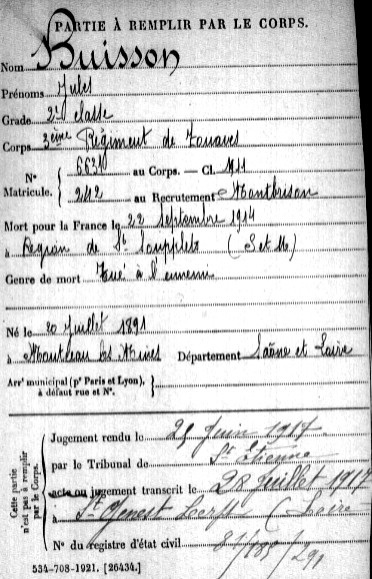 PARTIE À REMPLIR PAR LE CORPS.
Nom Buisson
Prénoms Jules
Grade 2e classe
Corps 3ème Régiment de Zouaves
N° Matricule. { 6631 au Corps. — Cl. 1911
242 au Recrutement Montbrison
Mort pour la France le 22 Septembre 1914
à Région de St Soupplets (S et M)
Genre de mort Tué à l'ennemi
Né le 20 Juillet 1891
à Montceau les Mines Département Saône et Loire
Arrt municipal (pr Paris et Lyon), à défaut rue et N°. }
Cette partie n'est pas à remplir par le Corps.
Jugement rendu le 25 Juin 1917
par le Tribunal de St Etienne
acte ou jugement transcrit le 28 Juillet 1917
à St Genest Lerpt (Loire
N° du registre d'état civil
534-708-1921. [26434.]